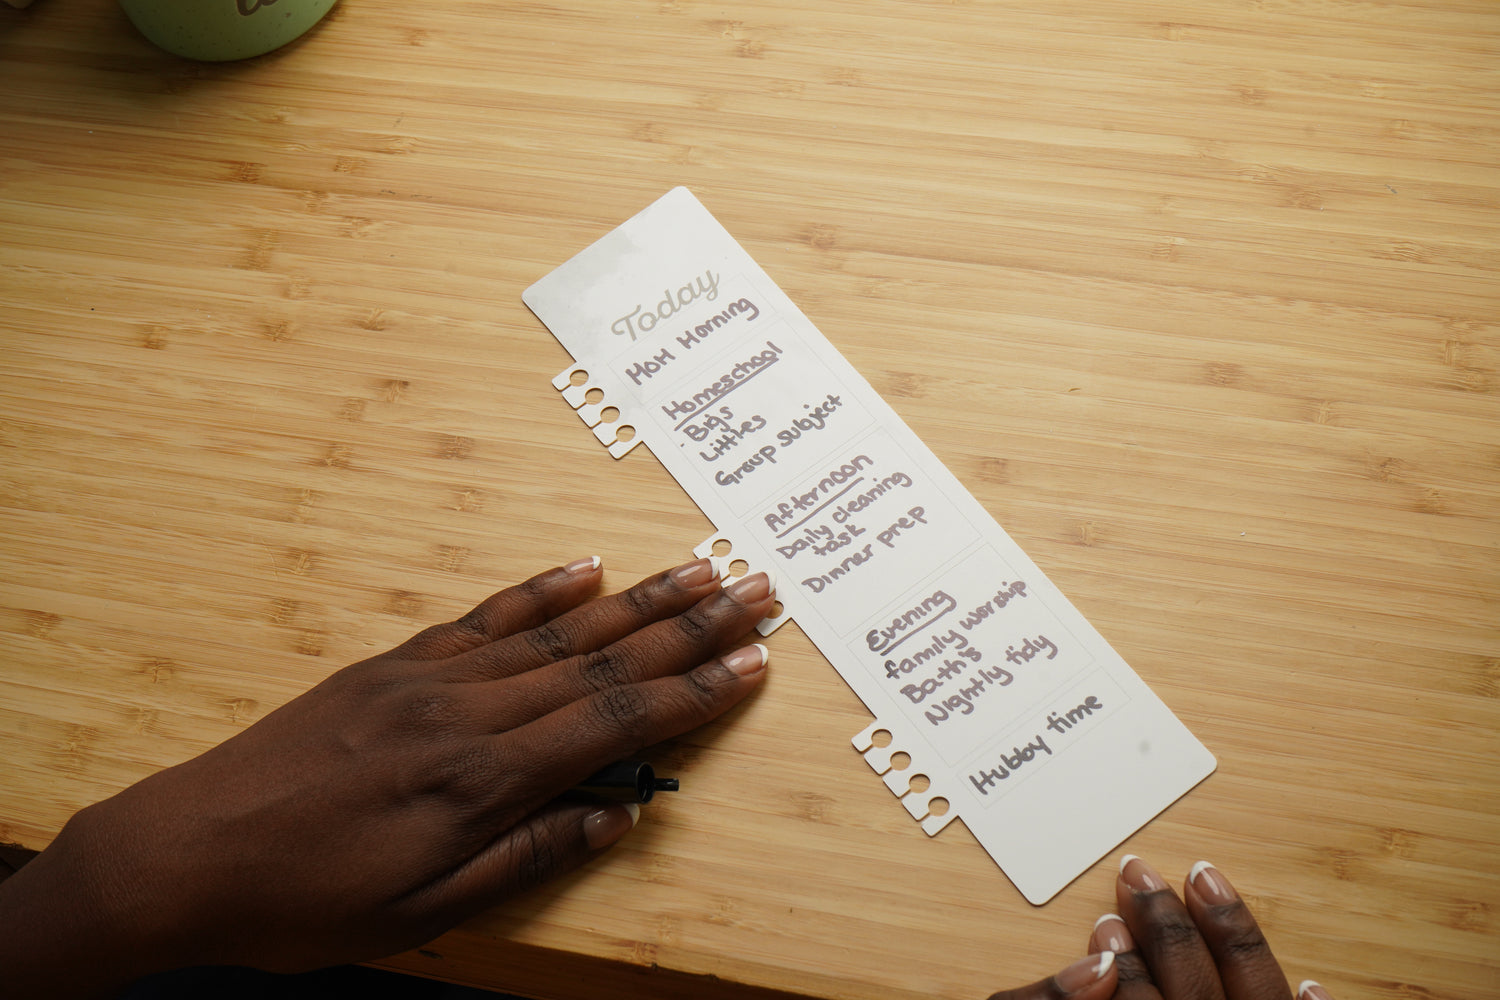 Today
MOH Morning
Homeschool
Bigs
Littles
Group subject
Afternoon
Daily cleaning
task
Dinner prep
Evening
family worship
Bath's
Nightly tidy
Hubby time